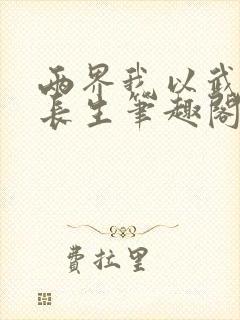 两界我以武
长生笔趣阁
费拉里